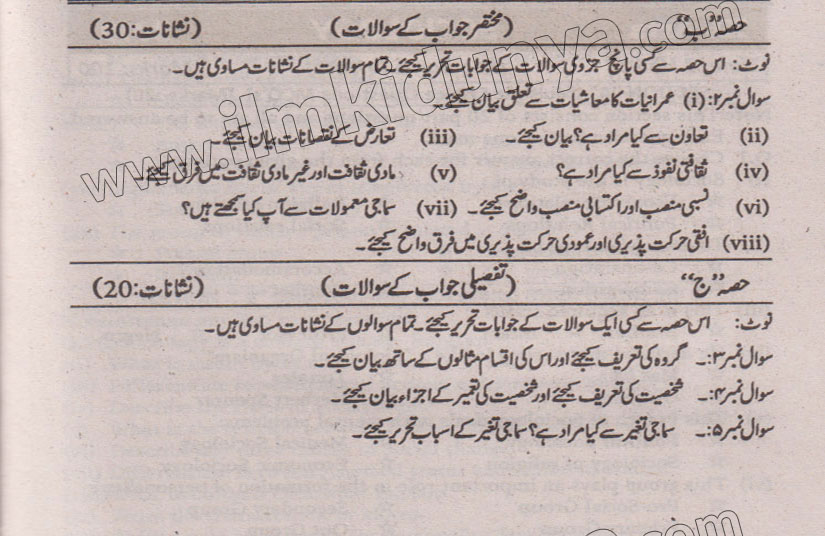 حصہ ”ب“ (مختصر جواب کے سوالات) (نشانات: 30)
نوٹ: اس حصہ سے کسی پانچ جزوی سوالات کے جوابات تحریر کیجئے۔ تمام سوالات کے نشانات مساوی ہیں۔
سوال نمبر۲: (i) عمرانیات کا معاشیات سے تعلق بیان کیجئے۔
(ii) تعاون سے کیا مراد ہے؟ بیان کیجئے۔ (iii) تعارض کے نقصانات بیان کیجئے۔
(iv) ثقافتی نفوذ سے کیا مراد ہے؟ (v) مادی ثقافت اور غیر مادی ثقافت میں فرق کیجئے۔
(vi) نسبی منصب اور اکتسابی منصب واضح کیجئے۔ (vii) سماجی معمولات سے آپ کیا سمجھتے ہیں؟
(viii) افقی حرکت پذیری اور عمودی حرکت پذیری میں فرق واضح کیجئے۔
حصہ ”ج“ (تفصیلی جواب کے سوالات) (نشانات: 20)
نوٹ: اس حصہ سے کسی ایک سوالات کے جوابات تحریر کیجئے۔ تمام سوالوں کے نشانات مساوی ہیں۔
سوال نمبر۳:۔ گروہ کی تعریف کیجئے اور اس کی اقسام مثالوں کے ساتھ بیان کیجئے۔
سوال نمبر۴:۔ شخصیت کی تعریف کیجئے اور شخصیت کی تعمیر کے اجزاء بیان کیجئے۔
سوال نمبر۵:۔ سماجی تغیر سے کیا مراد ہے؟ سماجی تغیر کے اسباب تحریر کیجئے۔
www.ilmkidunya.com